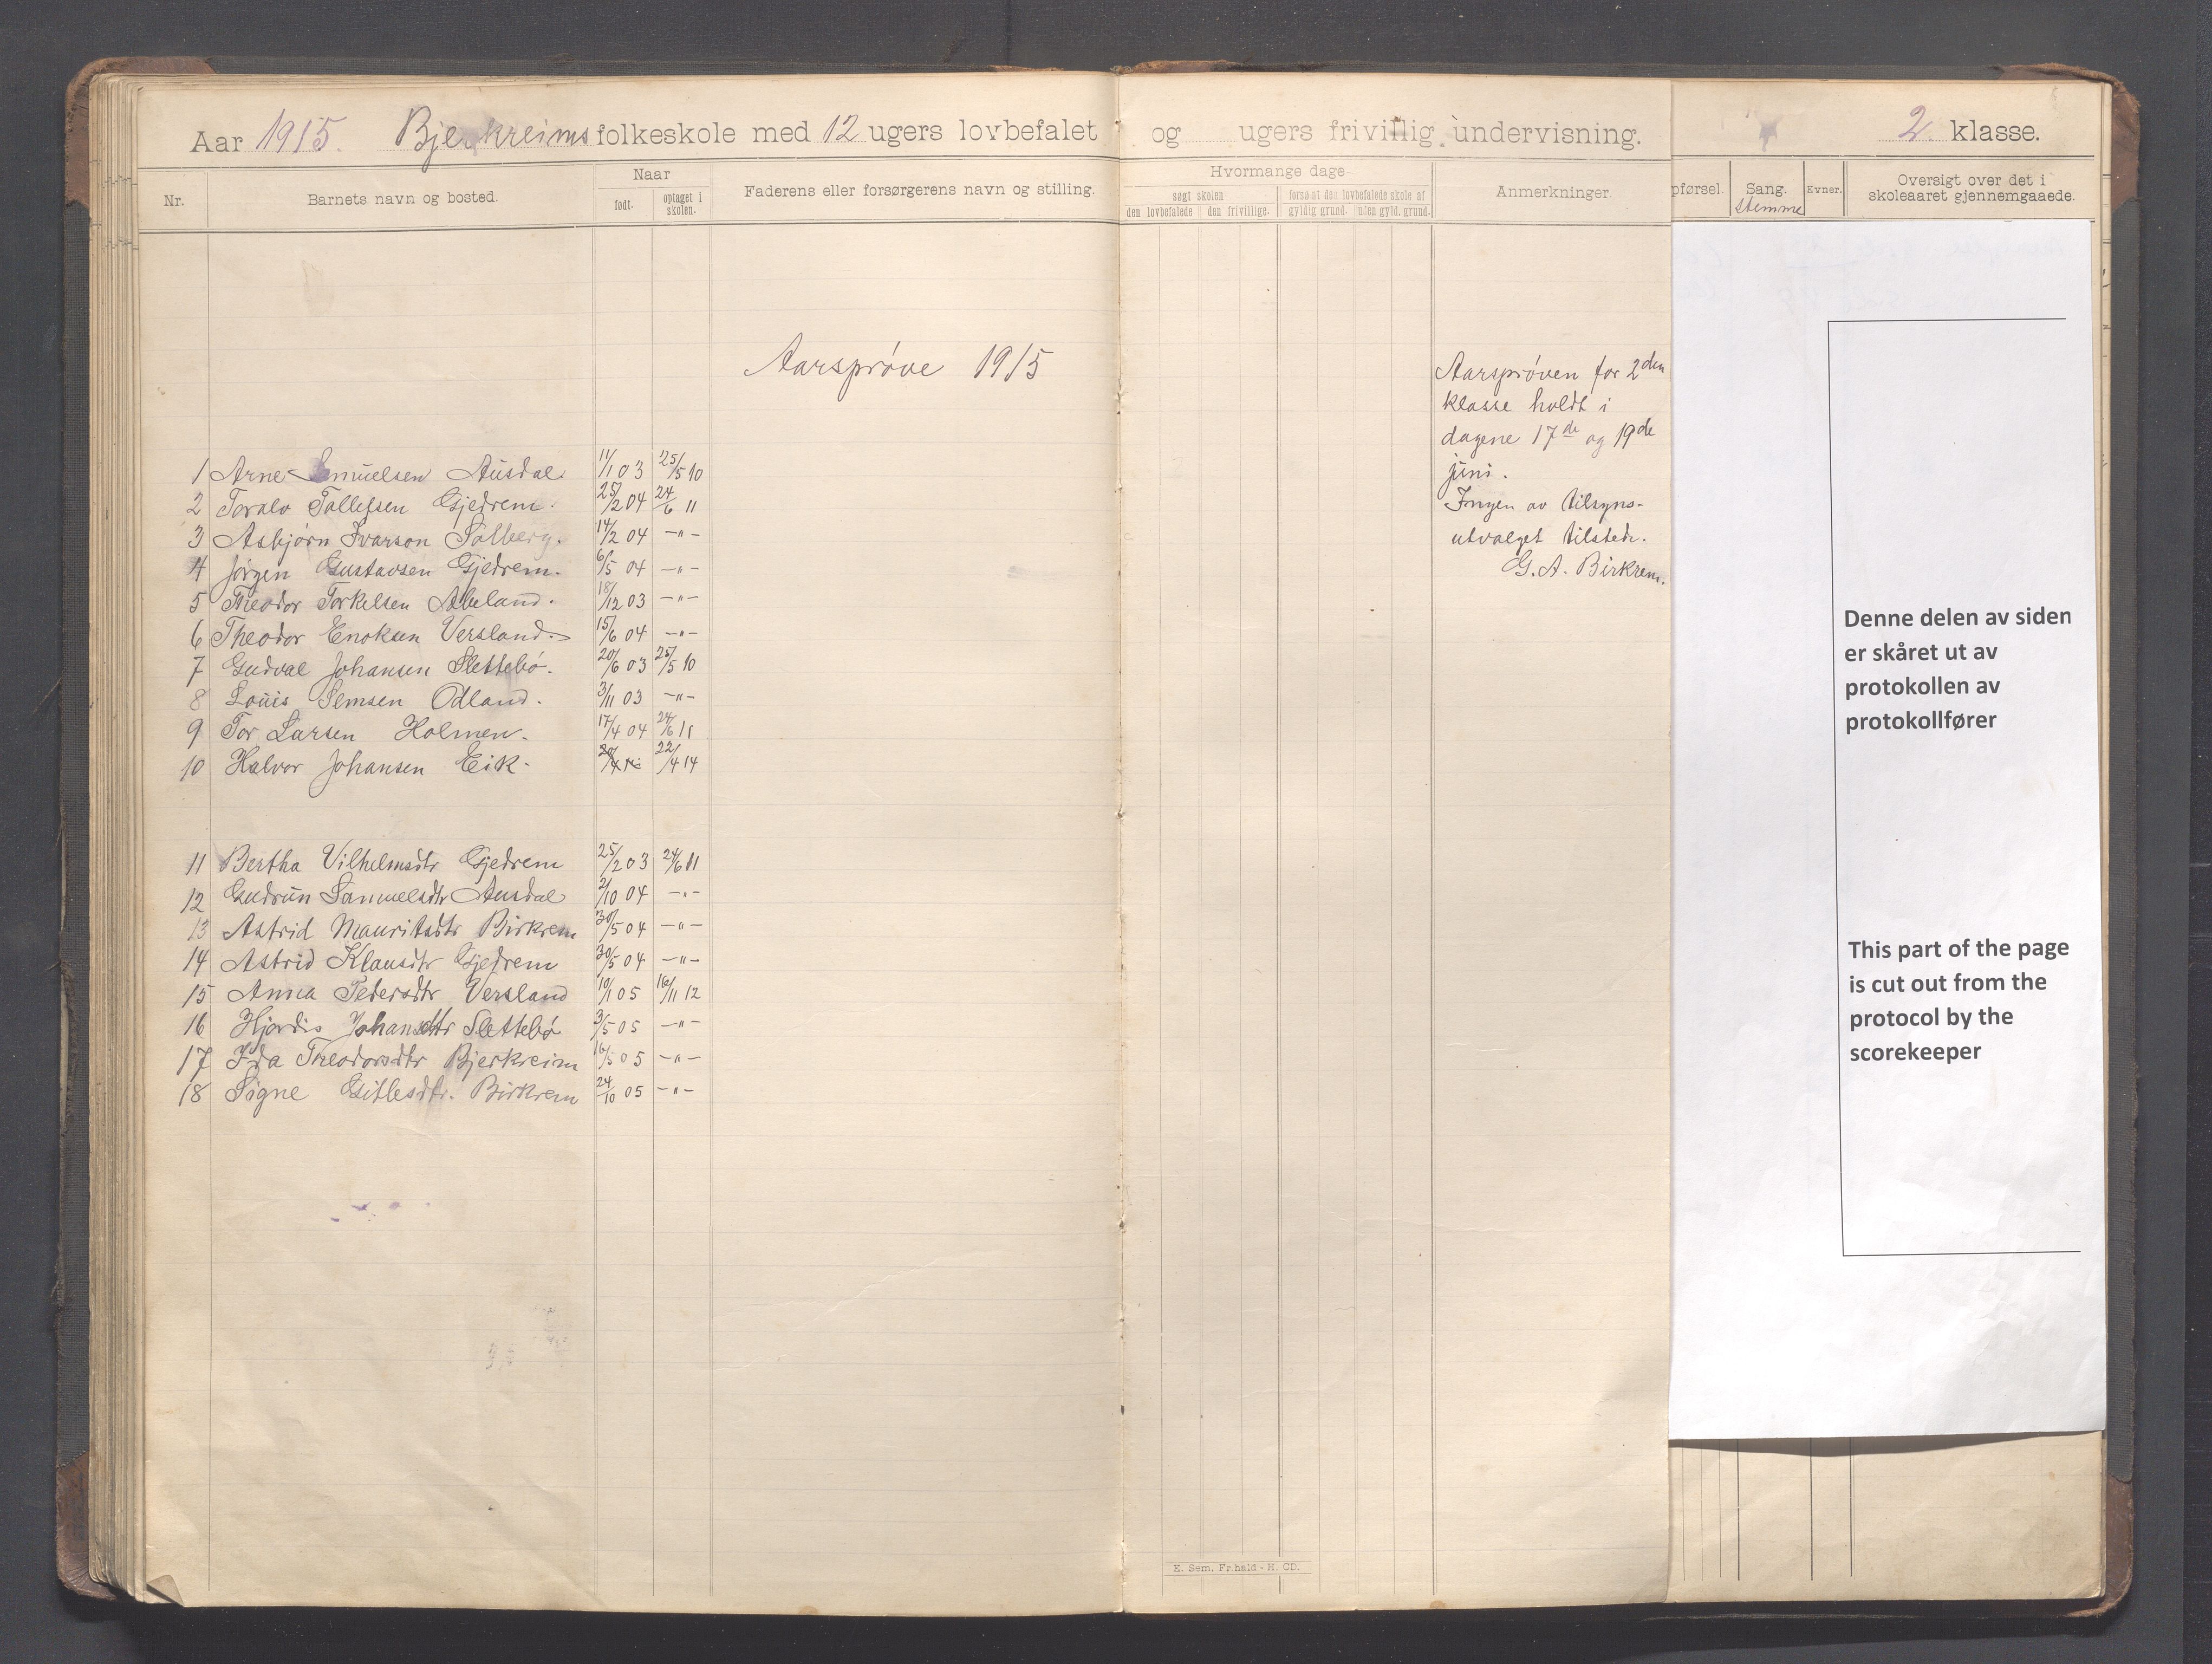 Aar 1915. Bjerkreims folkeskole med 12 ugers lovbefalet og ugers frivillig undervisning. 2. klasse.
Nr. Barnets navn og bosted. Naar født. optaget i skolen. Faderens eller forsørgerens navn og stilling.
Hvormange dage
søgt skolen den lovbefalede den frivillige. forsømt den lovbefalede skole af gyldig grund. uden gyld. grund.
Anmerkninger.
pførsel. Sang. stemme Evner. Oversigt over det i skoleaaret gjennemgaaede.
Aarsprøve 1915
Aarsprøven for 2den
klasse holdt i
dagene 17de og 19de
juni.
Ingen av tilsyns-
utvalget tilstede.
G. A. Birkrem.
1 Arne Samuelsen Ausdal. 11/1 03 25/5 10
2 Toralv Tollefsen Gjedrem. 25/2 04 24/6 11
3 Asbjørn Ivarson Solberg. 14/2 04 -"-
4 Jørgen Gustavsen Gjedrem. 6/5 04 -"-
5 Theodor Torkelsen Abeland. 18/12 03 -"-
6 Theodor Enoksen Versland. 15/6 04 -"-
7 Gudval Johansen Slettebø. 20/6 03 25/5 10
8 Louis Semsen Odland. 3/11 03 -"-
9 Tor Larsen Holmen. 17/4 04 24/6 11
10 Halvor Johansen Eik. 22/4 14
11 Bertha Vilhelmsdtr Gjedrem 25/2 03 24/6 11
12 Gudrun Samuelsdtr Ausdal 2/10 04 -"-
13 Astrid Mauritsdtr Birkrem 30/5 04 -"-
14 Astrid Klausdtr Gjedrem 30/5 04 -"-
15 Anna Pedersdtr Versland 10/1 05 16/11 12
16 Hjørdis Johansdtr Slettebø 3/5 05 -"-
17 Ida Theodorsdtr Bjerkreim 16/5 05 -"-
18 Signe Gitlesdtr. Birkrem 24/10 05 -"-
Denne delen av siden
er skåret ut av
protokollen av
protokollfører
This part of the page
is cut out from the
protocol by the
scorekeeper
E. Sem, Fr.hald - H. CD.